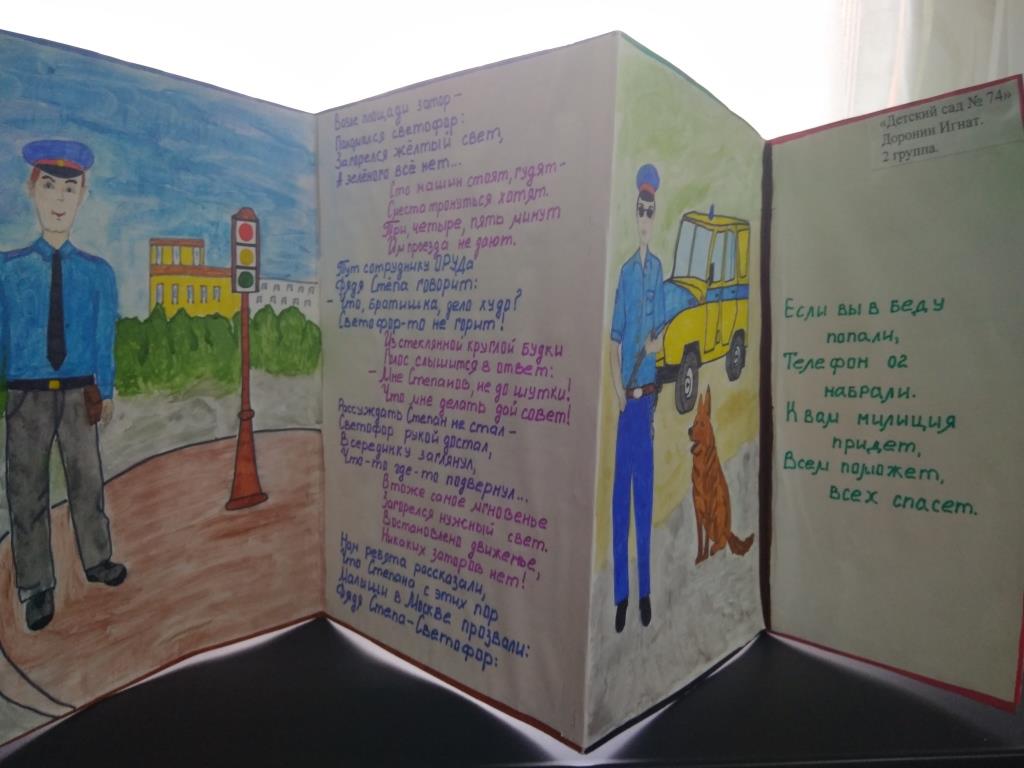 Возле площади затор –
Поломался светофор:
Загорелся жёлтый свет,
А зелёного всё нет...
Сто машин стоят, гудят –
С места тронуться хотят.
Три, четыре, пять минут
Им проезда не дают.
Тут сотруднику ОРУДа
Дядя Стёпа говорит:
– Что, братишка, дело худо?
Светофор-то не горит!
Из стеклянной круглой будки
Голос слышится в ответ:
– Мне Степанов, не до шутки!
Что мне делать дай совет!
Рассуждать Степан не стал –
Светофор рукой достал,
В серединку заглянул,
Что-то где-то подвернул...
В то же самое мгновенье
Загорелся нужный свет.
Востановлено движенье,
Никаких заторов нет!
Нам ребята рассказали,
Что Степана с этих пор
Малыши в Москве прозвали:
Дядя Стёпа-Светофор:
«Детский сад № 74»
Доронин Игнат.
2 группа.
Если вы в беду
попали,
Телефон 02
набрали.
К вам милиция
придет,
Всем поможет,
всех спасет.